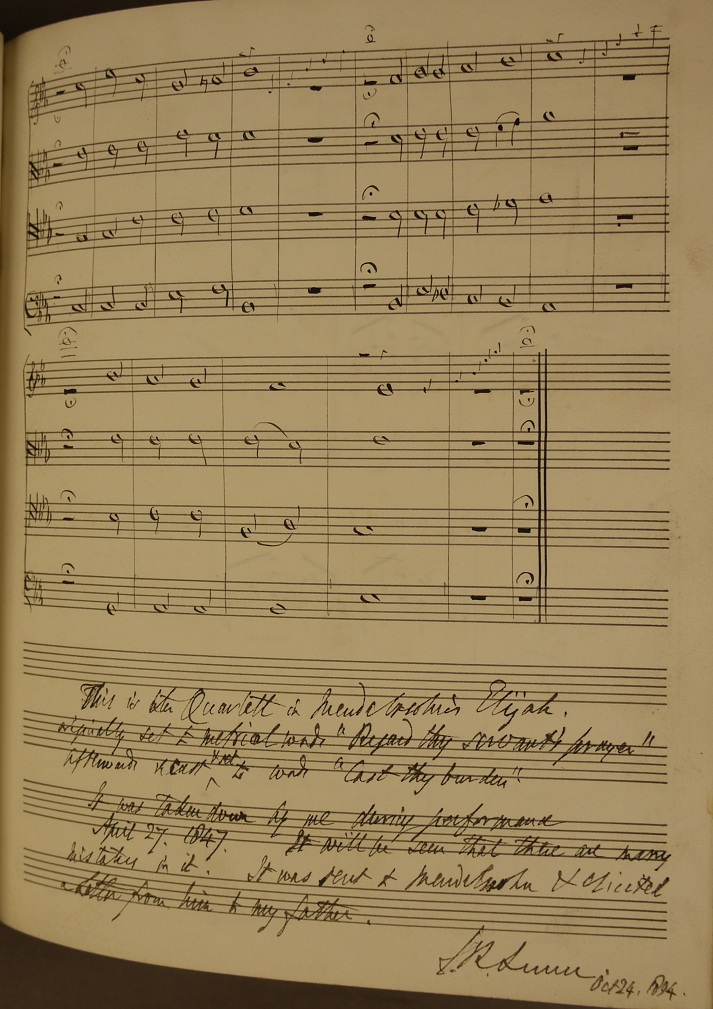 This is the Quartett in Mendelssohn's Elijah.
originally set to metrical words "Regard thy servant's prayer"
afterwards recast and set to words "Cast thy burden".
It was taken down by me during performance
April 27. 1847. It will be seen that there are many
mistakes in it. It was sent to Mendelssohn & elicited
a letter from him to my father.
Oct 24. 1894.